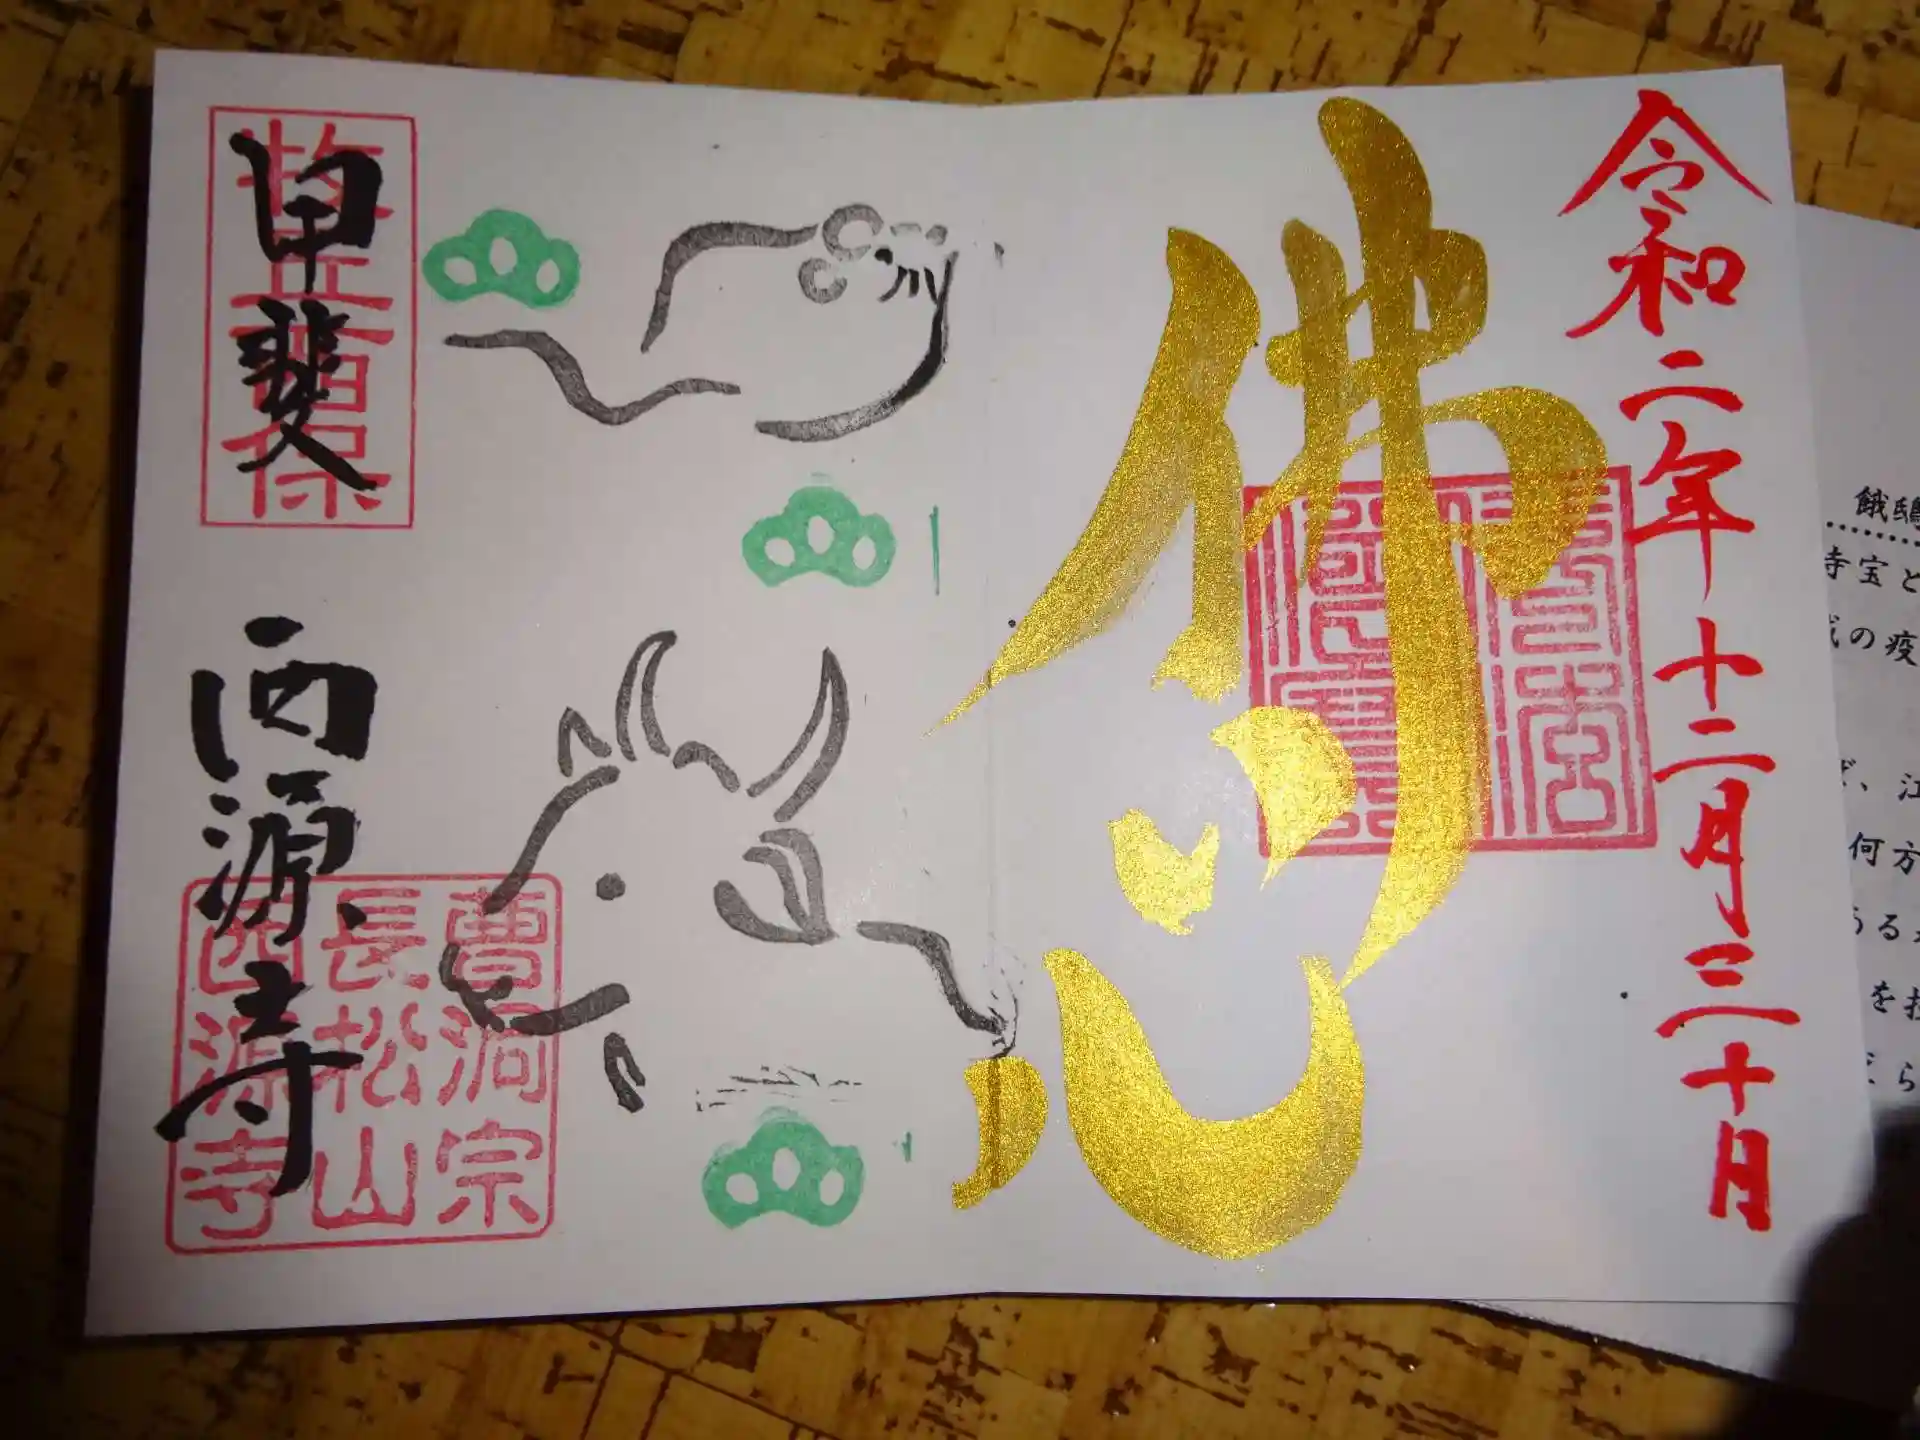 令和二年十二月三十日
佛心
甲斐
西源寺
曹洞宗
長松山
西源寺
寺宝と
の疫
、江
何方
うる
を
ら